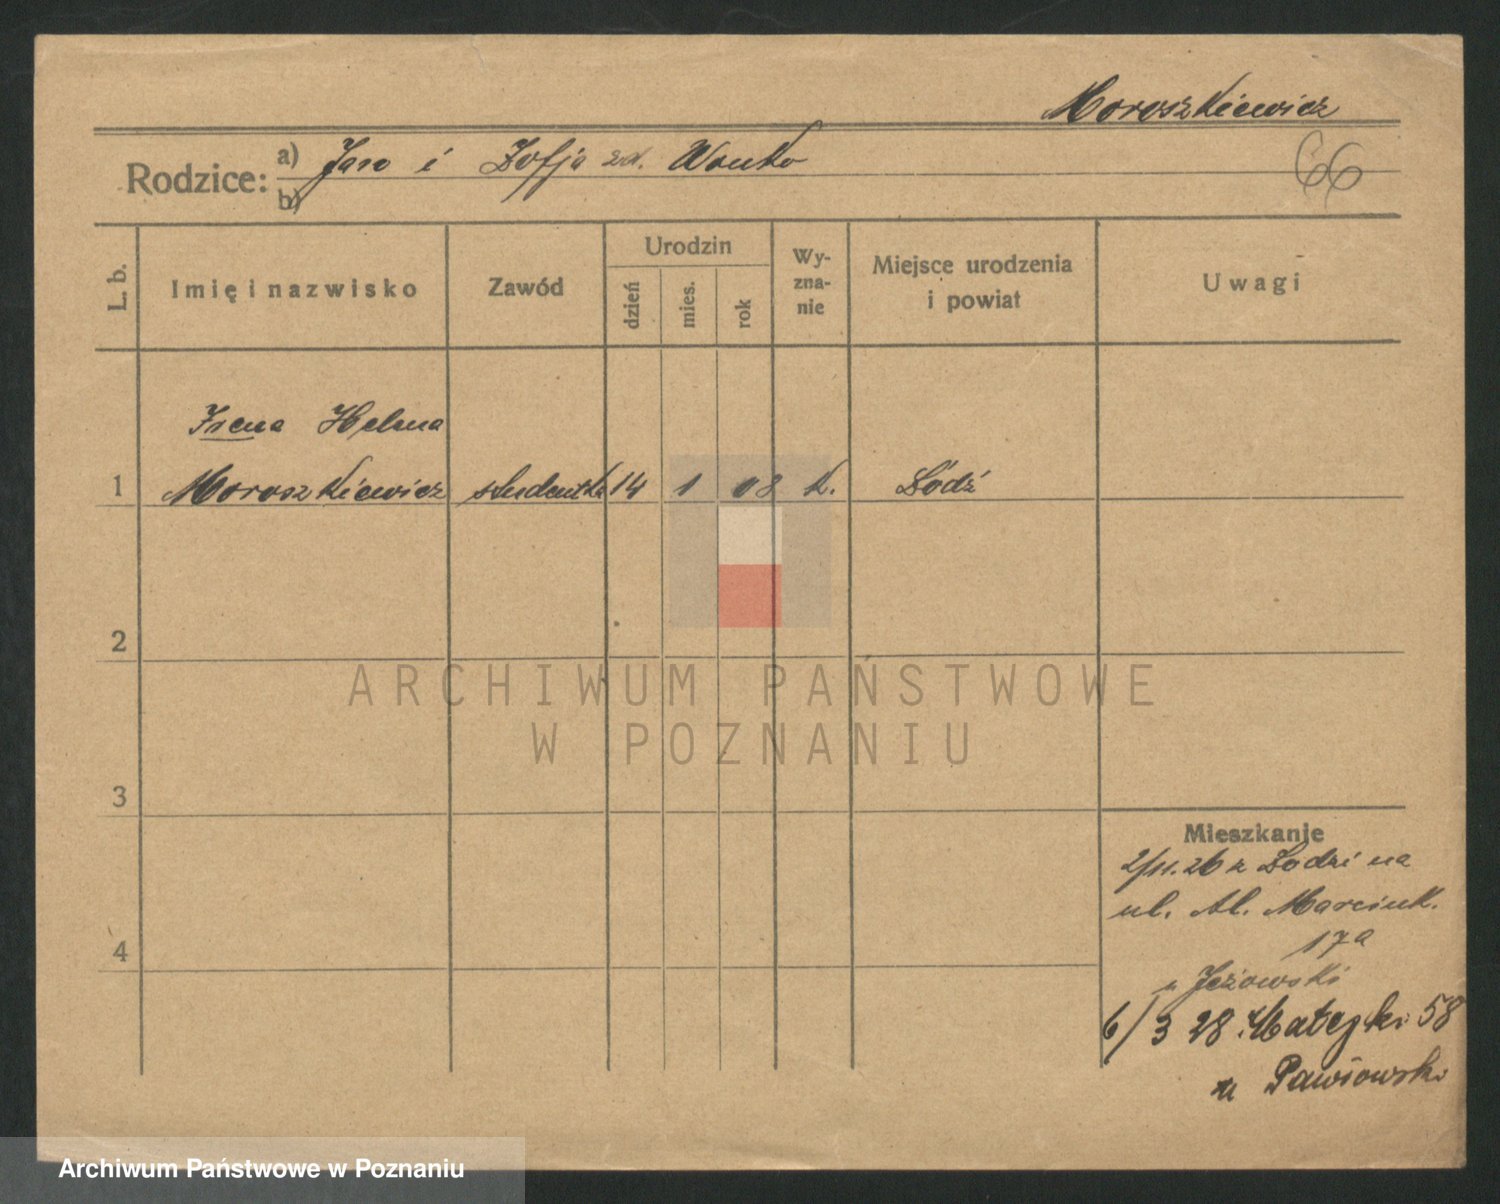 Moroszkiewicz
66
Rodzice: a) Jan i Zofja zd. Wonko
b)
L. b. Imię i nazwisko Zawód Urodzin dzień mies. rok Wyznanie Miejsce urodzenia i powiat Uwagi
Irena Helena
1 Moroszkiewicz studentka 14 1 08 k. Łódź
2
3
4
Mieszkanie
2/11.26 z Łodzi na
ul. Al. Marcink.
17a
u Jeżowski
6/3 28 Matejki 58
u Pawłowski
ARCHIWUM PAŃSTWOWE
W POZNANIU
Archiwum Państwowe w Poznaniu